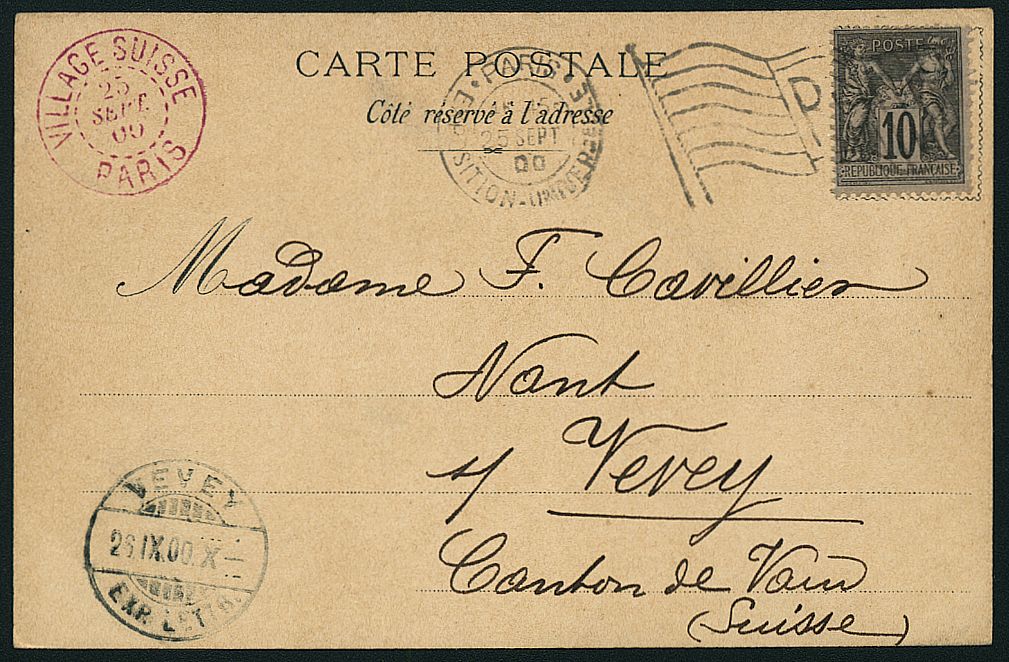 VILLAGE SUISSE
25
SEPT
00
PARIS
CARTE POSTALE
Côté réservé à l'adresse
PARIS
25 SEPT
00
SITION
POSTE
10
REPUBLIQUE FRANÇAISE
Madame F. Cavillier
Nant
s/ Vevey
Canton de Vaud
(Suisse)
VEVEY
26.IX.00.X
EXP. LETTR.